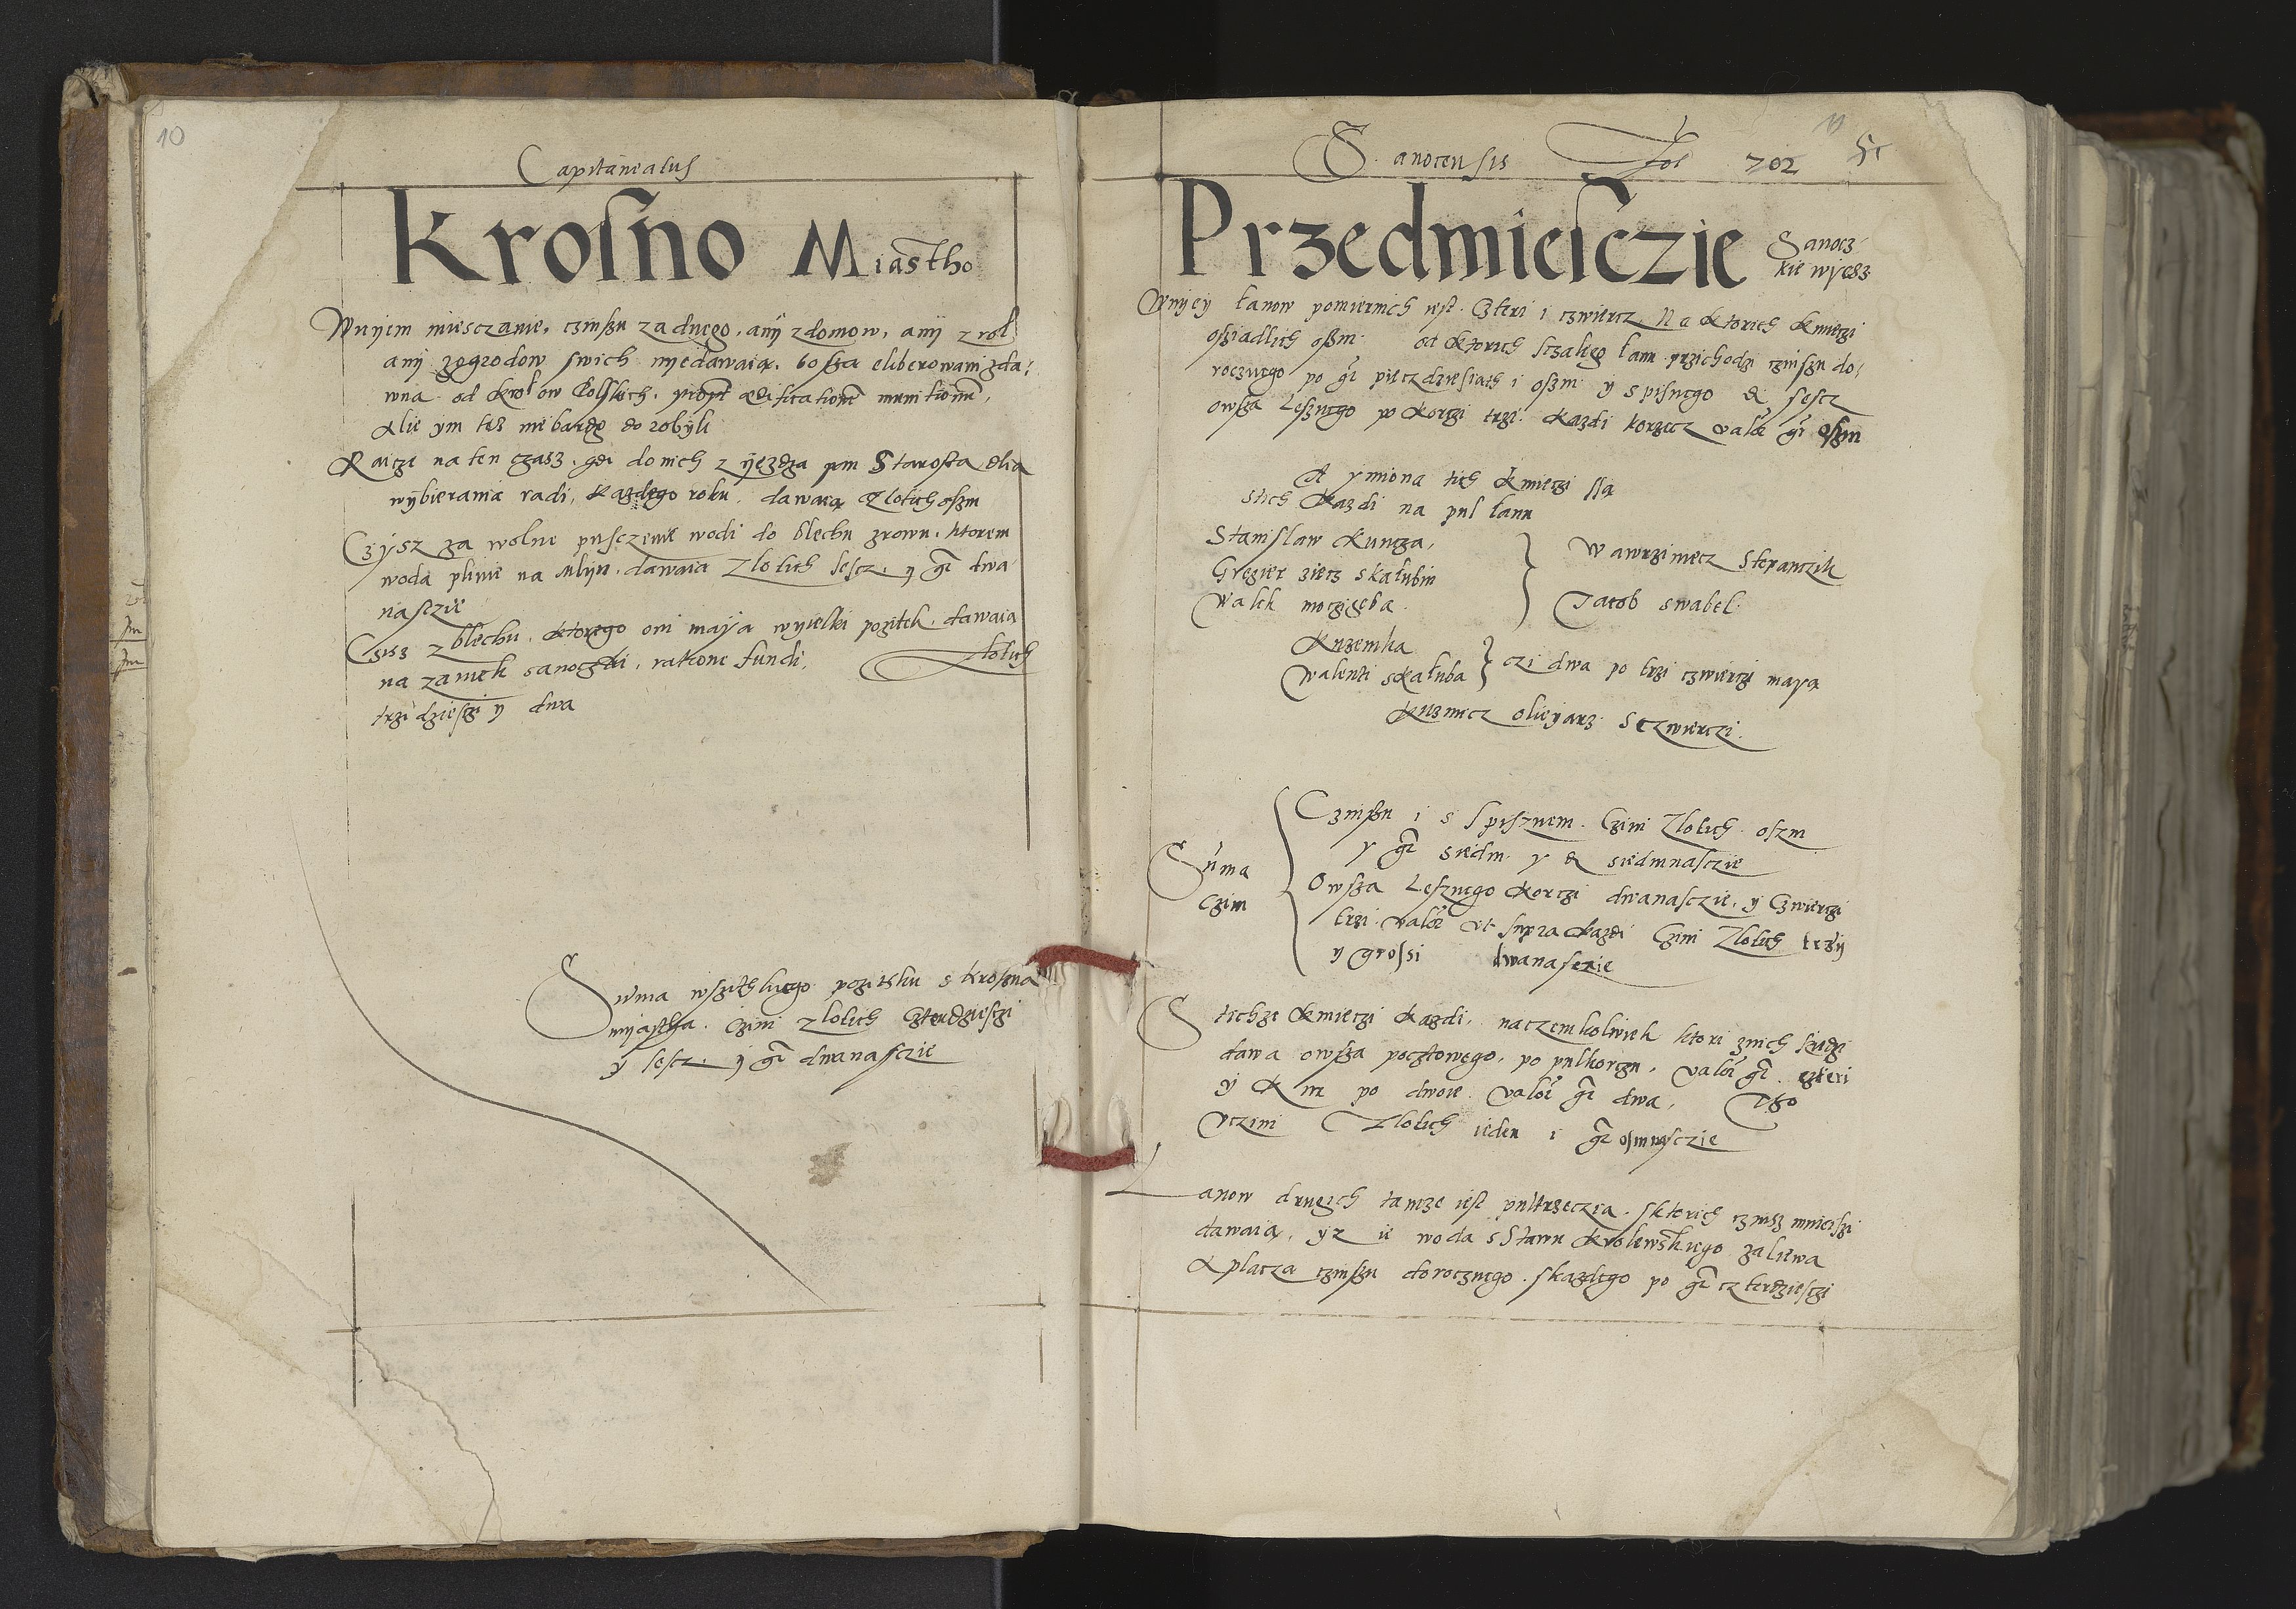 10
Capitaneatus
Krosno Miastho
Wnyem miesczanie, czinszu zadnego, anÿ zdomow, anÿ z rol
anÿ zogrodow swich nyedawaią, bo sza eliberowani zda-
wna od Krolow Polskich, propt aedificationē munitionū,
Alie ym tesz niebardzo robyli
Raicze na ten czasz, gdi donich zyezdza pan Starosta dlia
wybierania radi, kazdego roku, dawaią Zlotich oszm
Czysz za wolne pusczenie wodi do blechu zrowu, ktorem
woda plinie na Mlyn, dawaia Zlotich sescz, y gr dwa-
nasczie
Czisz z blechu, ktorego oni maya wyielki pozitek, dawaia
na zamek sanoczki, ratione fundi, Zlotich
trzidziesczi y dwa
Suma wszithkiego pozithku s Krosna
myastha. Czini zlotich Czterdziesczi
y sescz, y gr dwanasczie
11
Sanocensis Fol 702 51
Przedmiesczie Sanocz-
kie wyesz
Wnyey łanow pomiernich iest Czteri i czwiercz, Na ktorich kmieczi
osziadlich oszm. od ktorich sczaliego łanu przichodzi czinszu do-
rocznego po gr pieczdziesiath i oszm y spisnego d sescz
owsza Lesznego po korczi trzi, kazdi korzecz valet gr oszm
A ymiona tich kmieczi ssą
stich kazdi na pul łanu
Stanislaw Kuncza,
Gregier ziecz skałubin
Walek moczigeba
Wawrziniecz Stepanczik
Jacob swabel
Kuzemka
Walenti skałuba } czi dwa po trzi czwierczi mayą
Kuznicz oliejarz sczwierczi.
Suma
Czini
Czinszu i s spisznem. Czini Zlotich oszm
y gr siedm y d siedmnasczie
Owsza Lesznego korczi dwanasczie, y Czwierczi
trzi valet vt supra kazdi Czini Zlotich trzÿ
y grossi dwanasczie
Stichze kmieczi kazdi, naczemkolwiek ktori znich siedzi
dawa owsza pocztowego, po pulkorczu, valet gr czteri
y Kur po dwoie valet gr dwa, Tho
vczini Zlotich ieden i gr osmnasczie
Lanow drugich tamze iest pultrzeczia, sktorich czinsz mnieiszi
dawaią, yz ie woda sStawu krolewskiego zaliewa
A placza czinszu dorocznego, skazdego po gr czterdziesczi